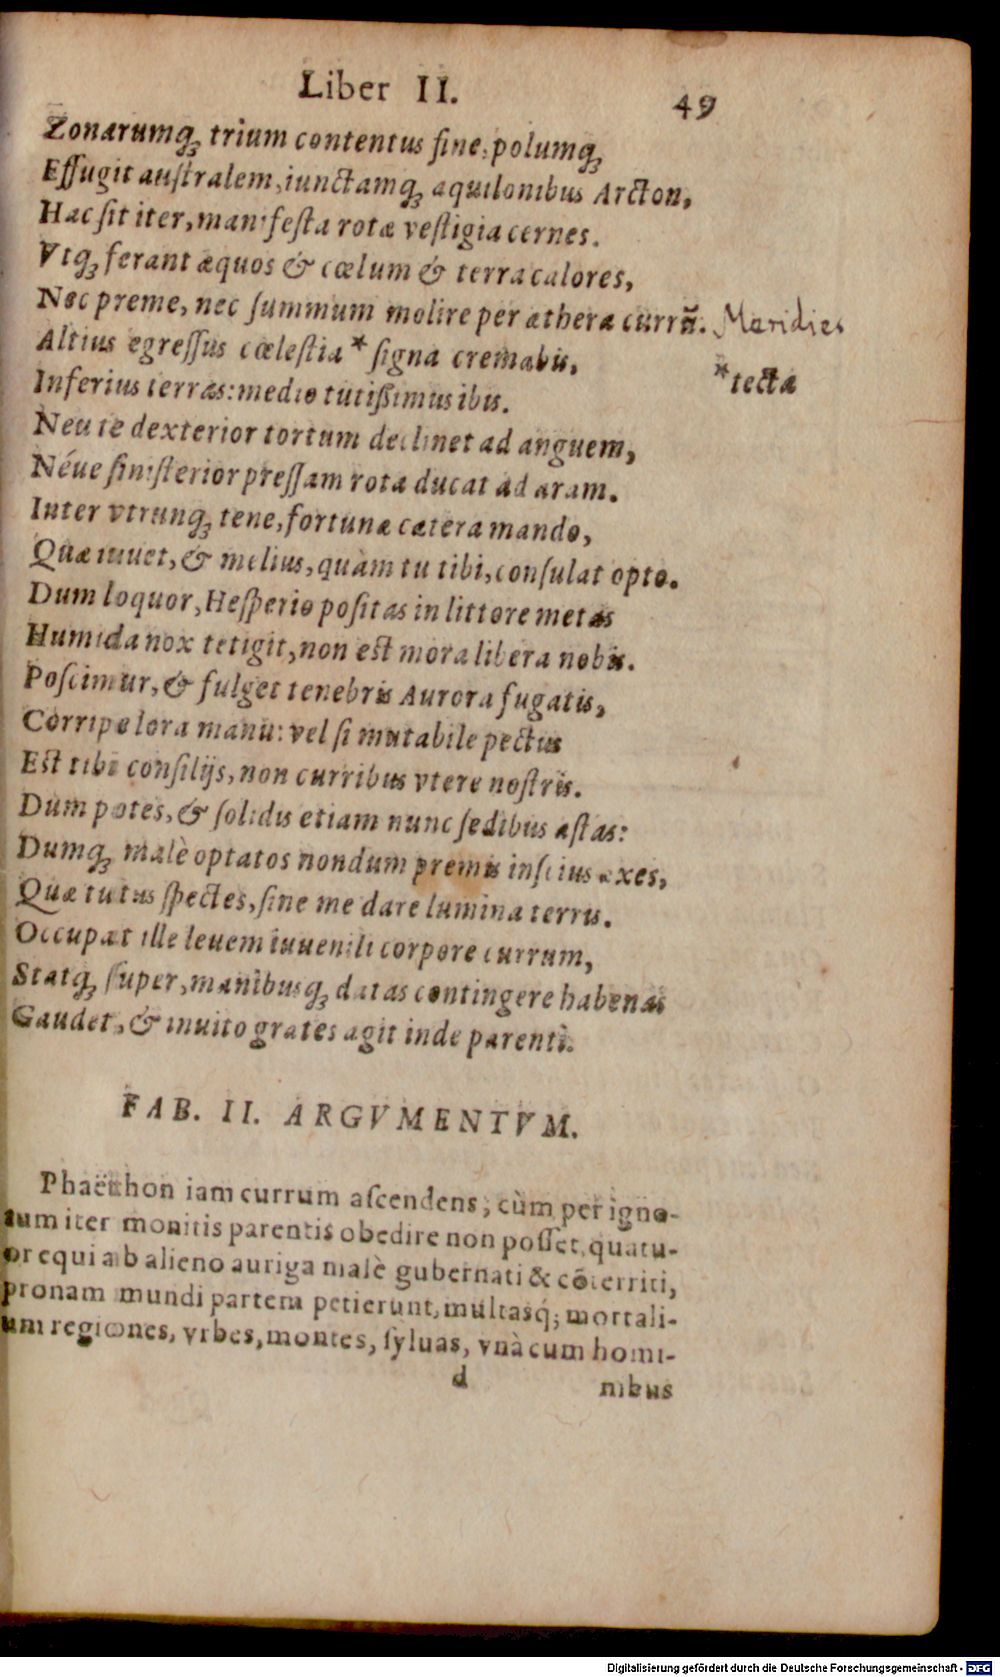 Liber II. 49
Zonarumq́ꝫ trium contentus fine, polumq́ꝫ
Effugit auſtralem, iunctamq́ꝫ aquilonibus Arcton,
Hac ſit iter, manifeſta rotæ veſtigia cernes.
Vtq́ꝫ ferant æquos & cœlum & terra calores,
Nec preme, nec ſummum molire per æthera currũ. Meridies
Altius egreſſus cœleſtia * ſigna cremabis,
*tecta
Inferius terras: medio tutißimus ibis.
Neu te dexterior tortum declinet ad anguem,
Néue ſiniſterior preſſam rota ducat ad aram.
Inter vtrunq́ꝫ tene, fortunæ cætera mando,
Quæ iuuet, & melius, quàm tu tibi, conſulat opto.
Dum loquor, Heſperio poſitas in littore metas
Humida nox tetigit, non eſt mora libera nobis.
Poſcimur, & fulget tenebris Aurora fugatis,
Corripe lora manu: vel ſi mutabile pectus
Eſt tibi conſilijs, non curribus vtere noſtris.
Dum potes, & ſolidis etiam nunc ſedibus aſtas:
Dumq́ꝫ malè optatos nondum premis inſcius axes,
Quæ tutus ſpectes, ſine me dare lumina terris.
Occupat ille leuem iuuenili corpore currum,
Statq́ꝫ ſuper, manibusq́ꝫ datas contingere habenas
Gaudet, & inuito grates agit inde parenti.
FAB. II. ARGVMENTVM.
Phaëthon iam currum aſcendens, cùm per igno-
tum iter monitis parentis obedire non poſſet, quatu-
or equi ab alieno auriga malè gubernati & cõterriti,
pronam mundi partem petierunt, multasq́; mortali-
um regiones, vrbes, montes, ſyluas, vnà cum homi-
d nibus
Digitalisierung gefördert durch die Deutsche Forschungsgemeinschaft - DFG